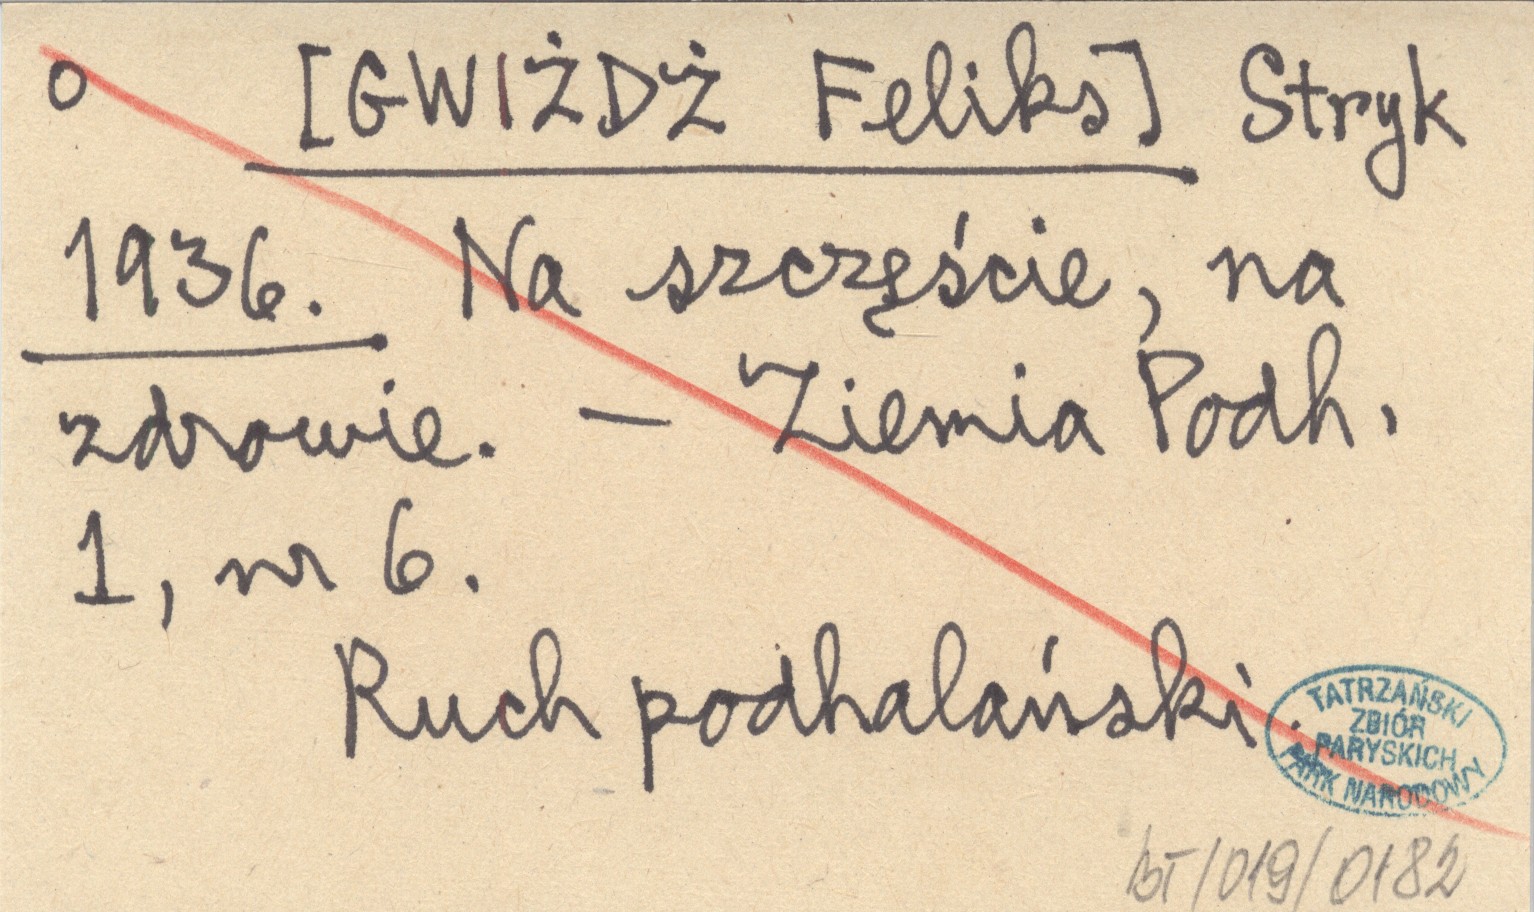 o [GWIŻDŻ Feliks] Stryk
1936. Na szczęście, na
zdrowie. — Ziemia Podh.
1, nr 6.
Ruch podhalański.
TATRZAŃSKI
ZBIÓR
PARYSKICH
PARK NARODOWY
BT/019/0182